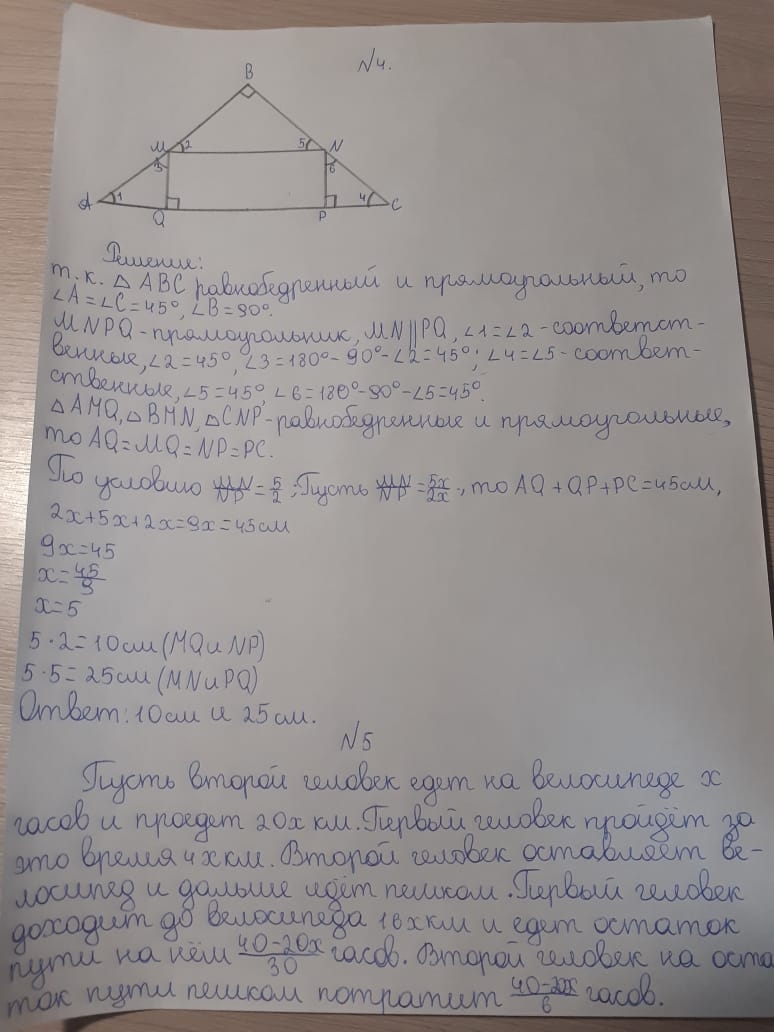 N4.
B
M 2 5 N
3 6
A 1 4 C
Q P
Решение:
т.к. △ ABC равнобедренный и прямоугольный, то
∠A=∠C=45°, ∠B=90°.
MNPQ-прямоугольник, MN||PQ, ∠1=∠2-соответст-
венные, ∠2=45°, ∠3=180°-90°-∠2=45°; ∠4=∠5-соответ-
ственные, ∠5=45°, ∠6=180°-90°-∠5=45°.
△AMQ, △BMN, △CNP-равнобедренные и прямоугольные,
то AQ=MQ=NP=PC.
По условию MN/NP=5/2; Пусть MN/NP=5x/2x, то AQ+QP+PC=45см,
2x+5x+2x=9x=45см
9x=45
x=45/9
x=5
5·2=10см(MQ и NP)
5·5=25см(MN и PQ)
Ответ: 10см и 25см.
N5
Пусть второй человек едет на велосипеде x
часов и проедет 20x км. Первый человек пройдёт за
это время 4x км. Второй человек оставляет ве-
лосипед и дальше идёт пешком. Первый человек
доходит до велосипеда 16x км и едет остаток
пути на нём 40-20x/30 часов. Второй человек на оста
ток пути пешком потратит 40-20x/6 часов.